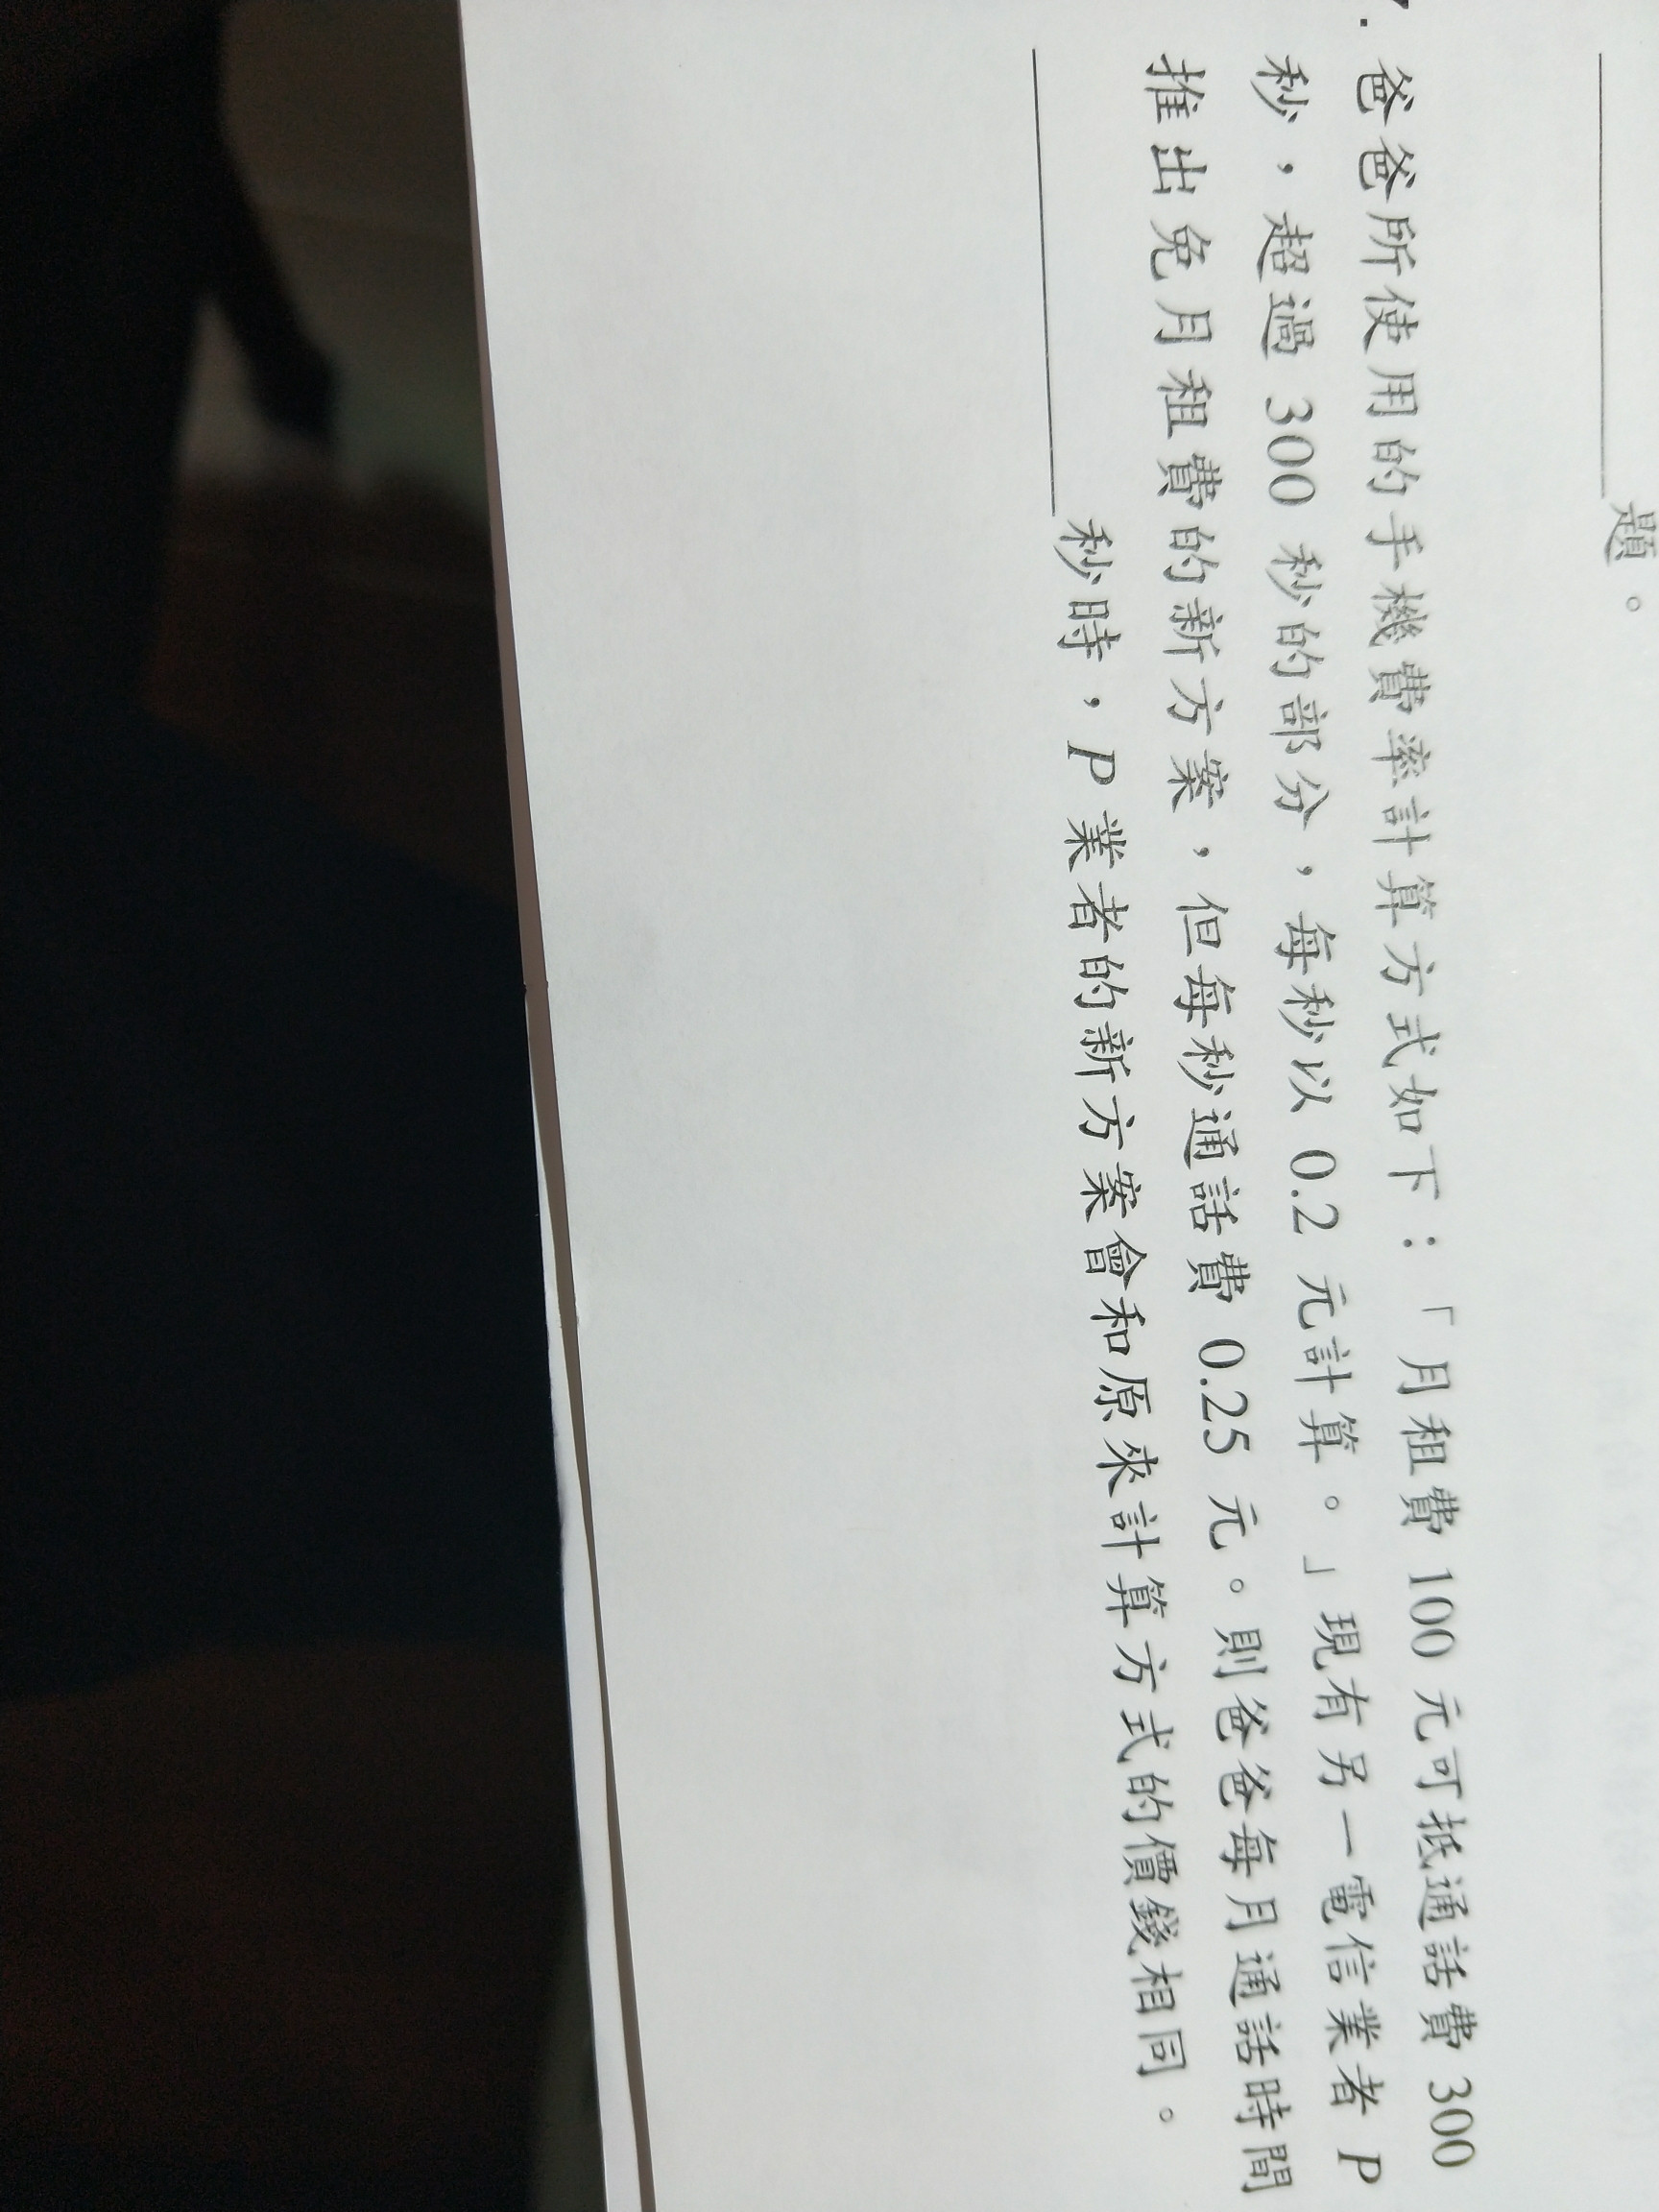 題。
7. 爸爸所使用的手機費率計算方式如下：「月租費 100 元可抵通話費 300
秒，超過 300 秒的部分，每秒以 0.2 元計算。」現有另一電信業者 P
推出免月租費的新方案，但每秒通話費 0.25 元。則爸爸每月通話時間
秒時，P 業者的新方案會和原來計算方式的價錢相同。